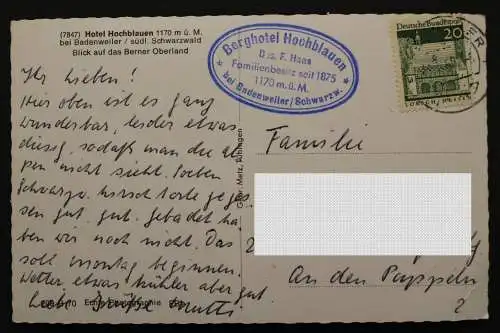 (7847) Hotel Hochblauen 1170 m ü. M.
bei Badenweiler / südl. Schwarzwald
Blick auf das Berner Oberland
Berghotel Hochblauen
Bes. F. Haas
Familienbesitz seit 1875
1170 m.ü.M.
bei Badenweiler/Schwarzw.
Deutsche Bundespost
20
LORSCH/HESSEN
Ihr Lieben!
Hier oben ist es ganz
wunderbar, leider etwas
diesig, sodaß man die Al
pen nicht sieht. Soeben
Schwarzw. Kirschtorte geges
sen gut, gut. Gebadet ha
ben wir noch nicht. Das
soll Montag beginnen.
Wetter etwas kühler aber gut
Liebe Grüße Mutti
Gebr. Metz, Tübingen
Familie
An den Pappeln
2